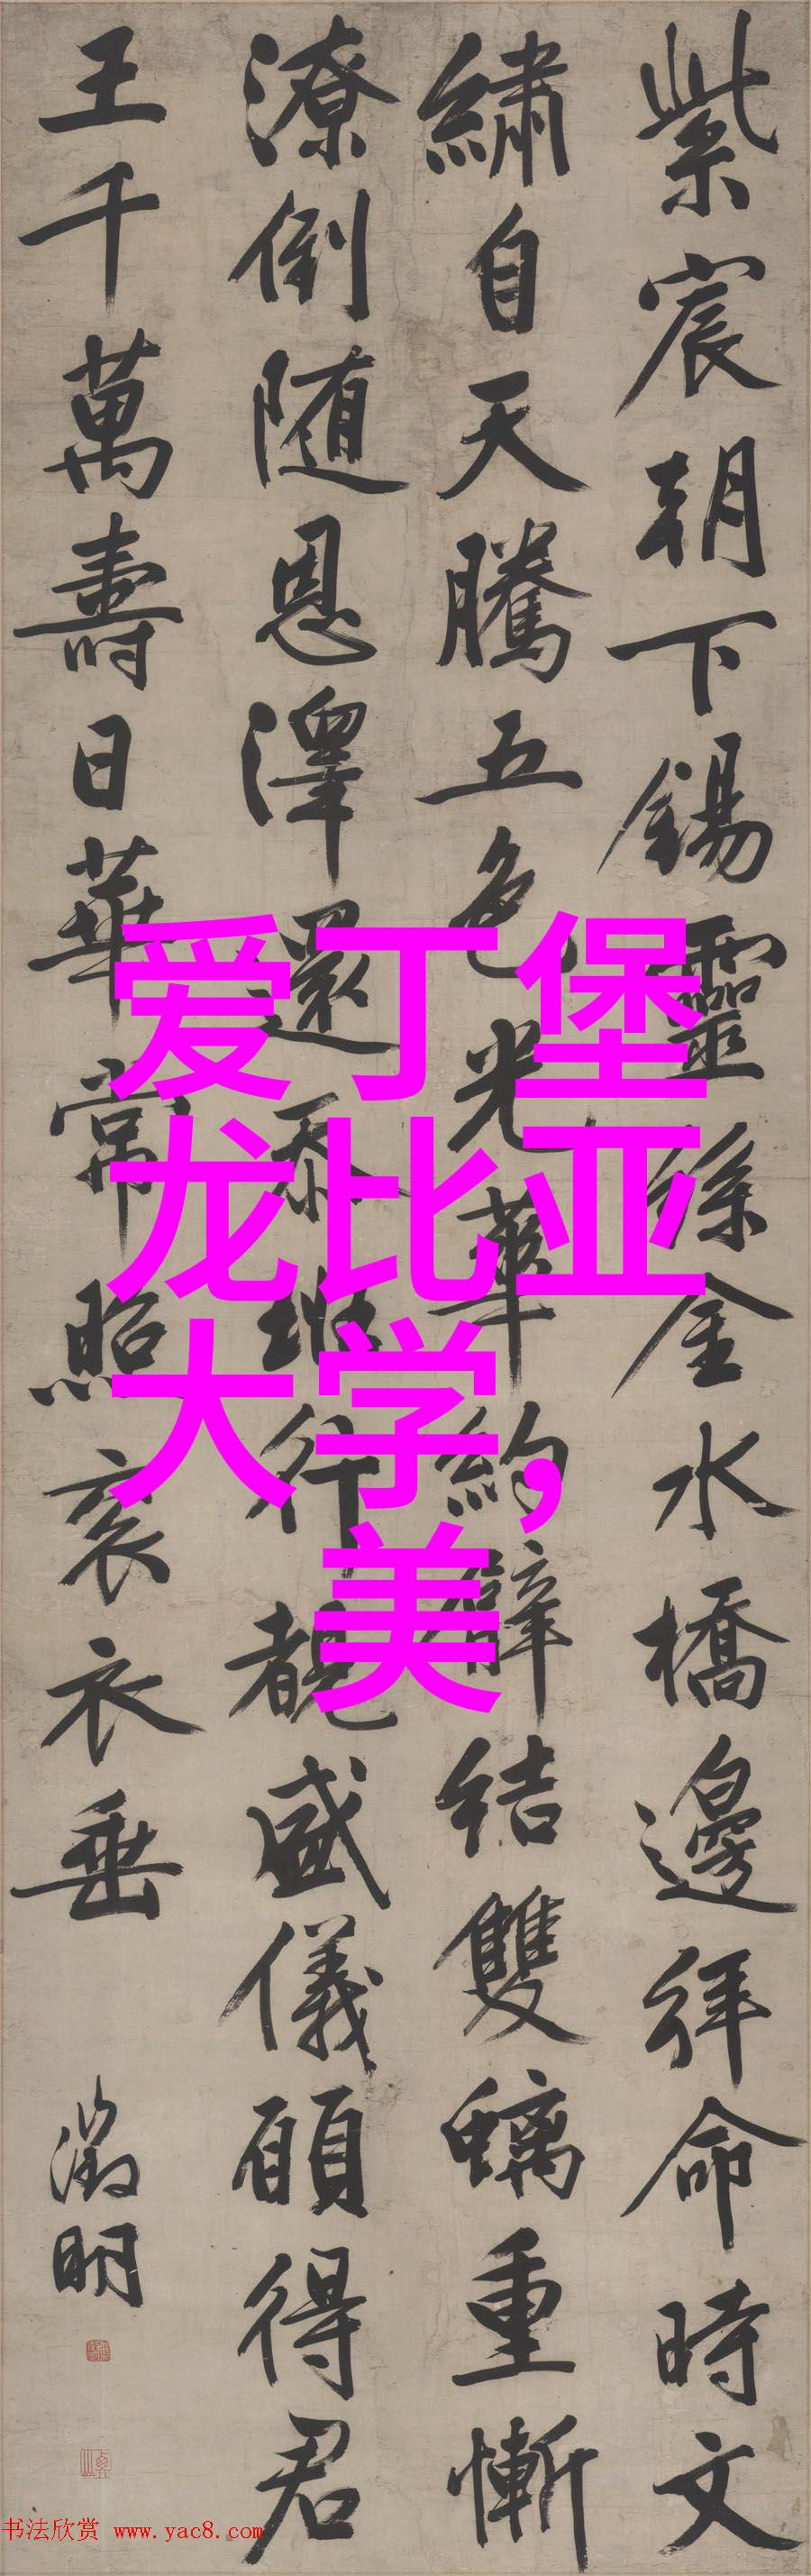 紫宸朝下錫靈絲金水橋邊拜命時文
繡自天騰五色光華約臂結雙螭重慚
潦倒随恩澤還忝班行覩盛儀願得君
王千萬壽日華常照袞衣垂
徵明
爱丁堡
龙比亚
大学,
美
书法欣赏 www.yac8.com